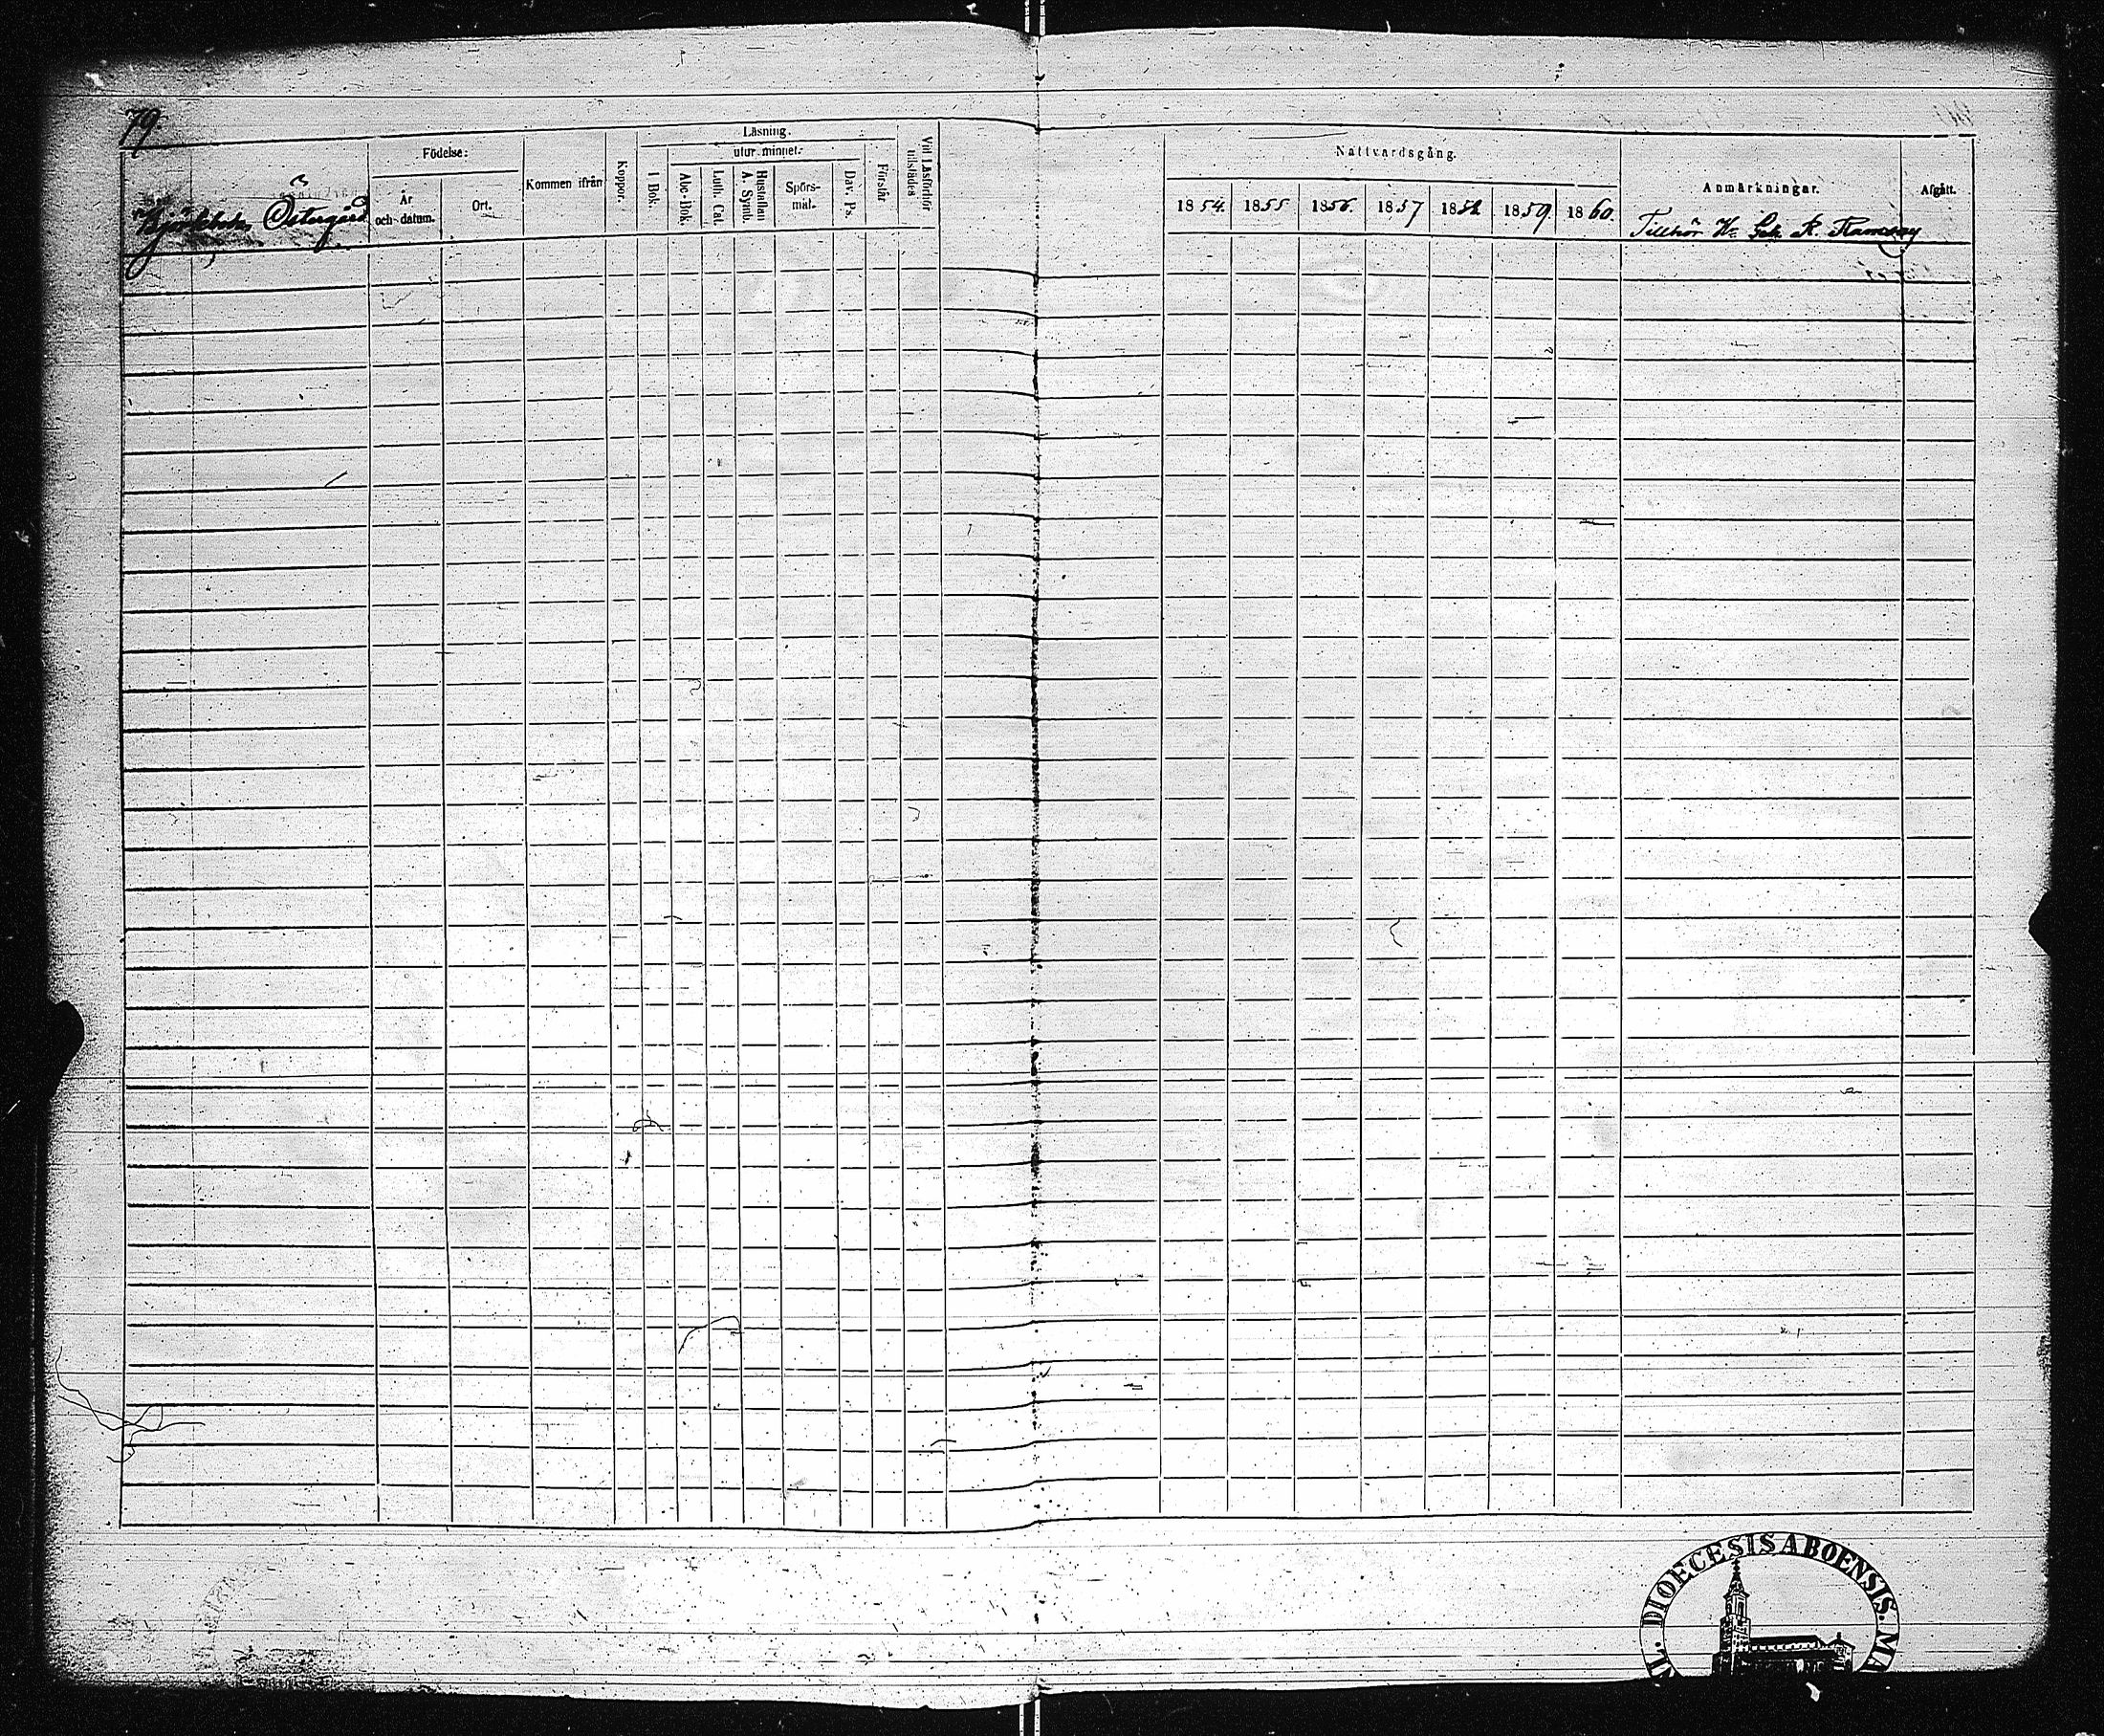 79.
Läsning.
Födelse:
utur minnet.
Kommen ifrån
Koppor.
I Bok.
Abc-Bok.
Luth. Cat.
Hustaflan A. Symb.
Spörs-
mål.
Dav. Ps.
Förstår
Vid Läsförhör tillstädes
År
och datum.
Ort.
Östergård
Nattvardsgång.
Anmärkningar.
Afgått.
1854. 1855 1856. 1857 1858 1859. 1860.
Tillhör R. Ramsay
DIOECESIS ABOENSIS. MA